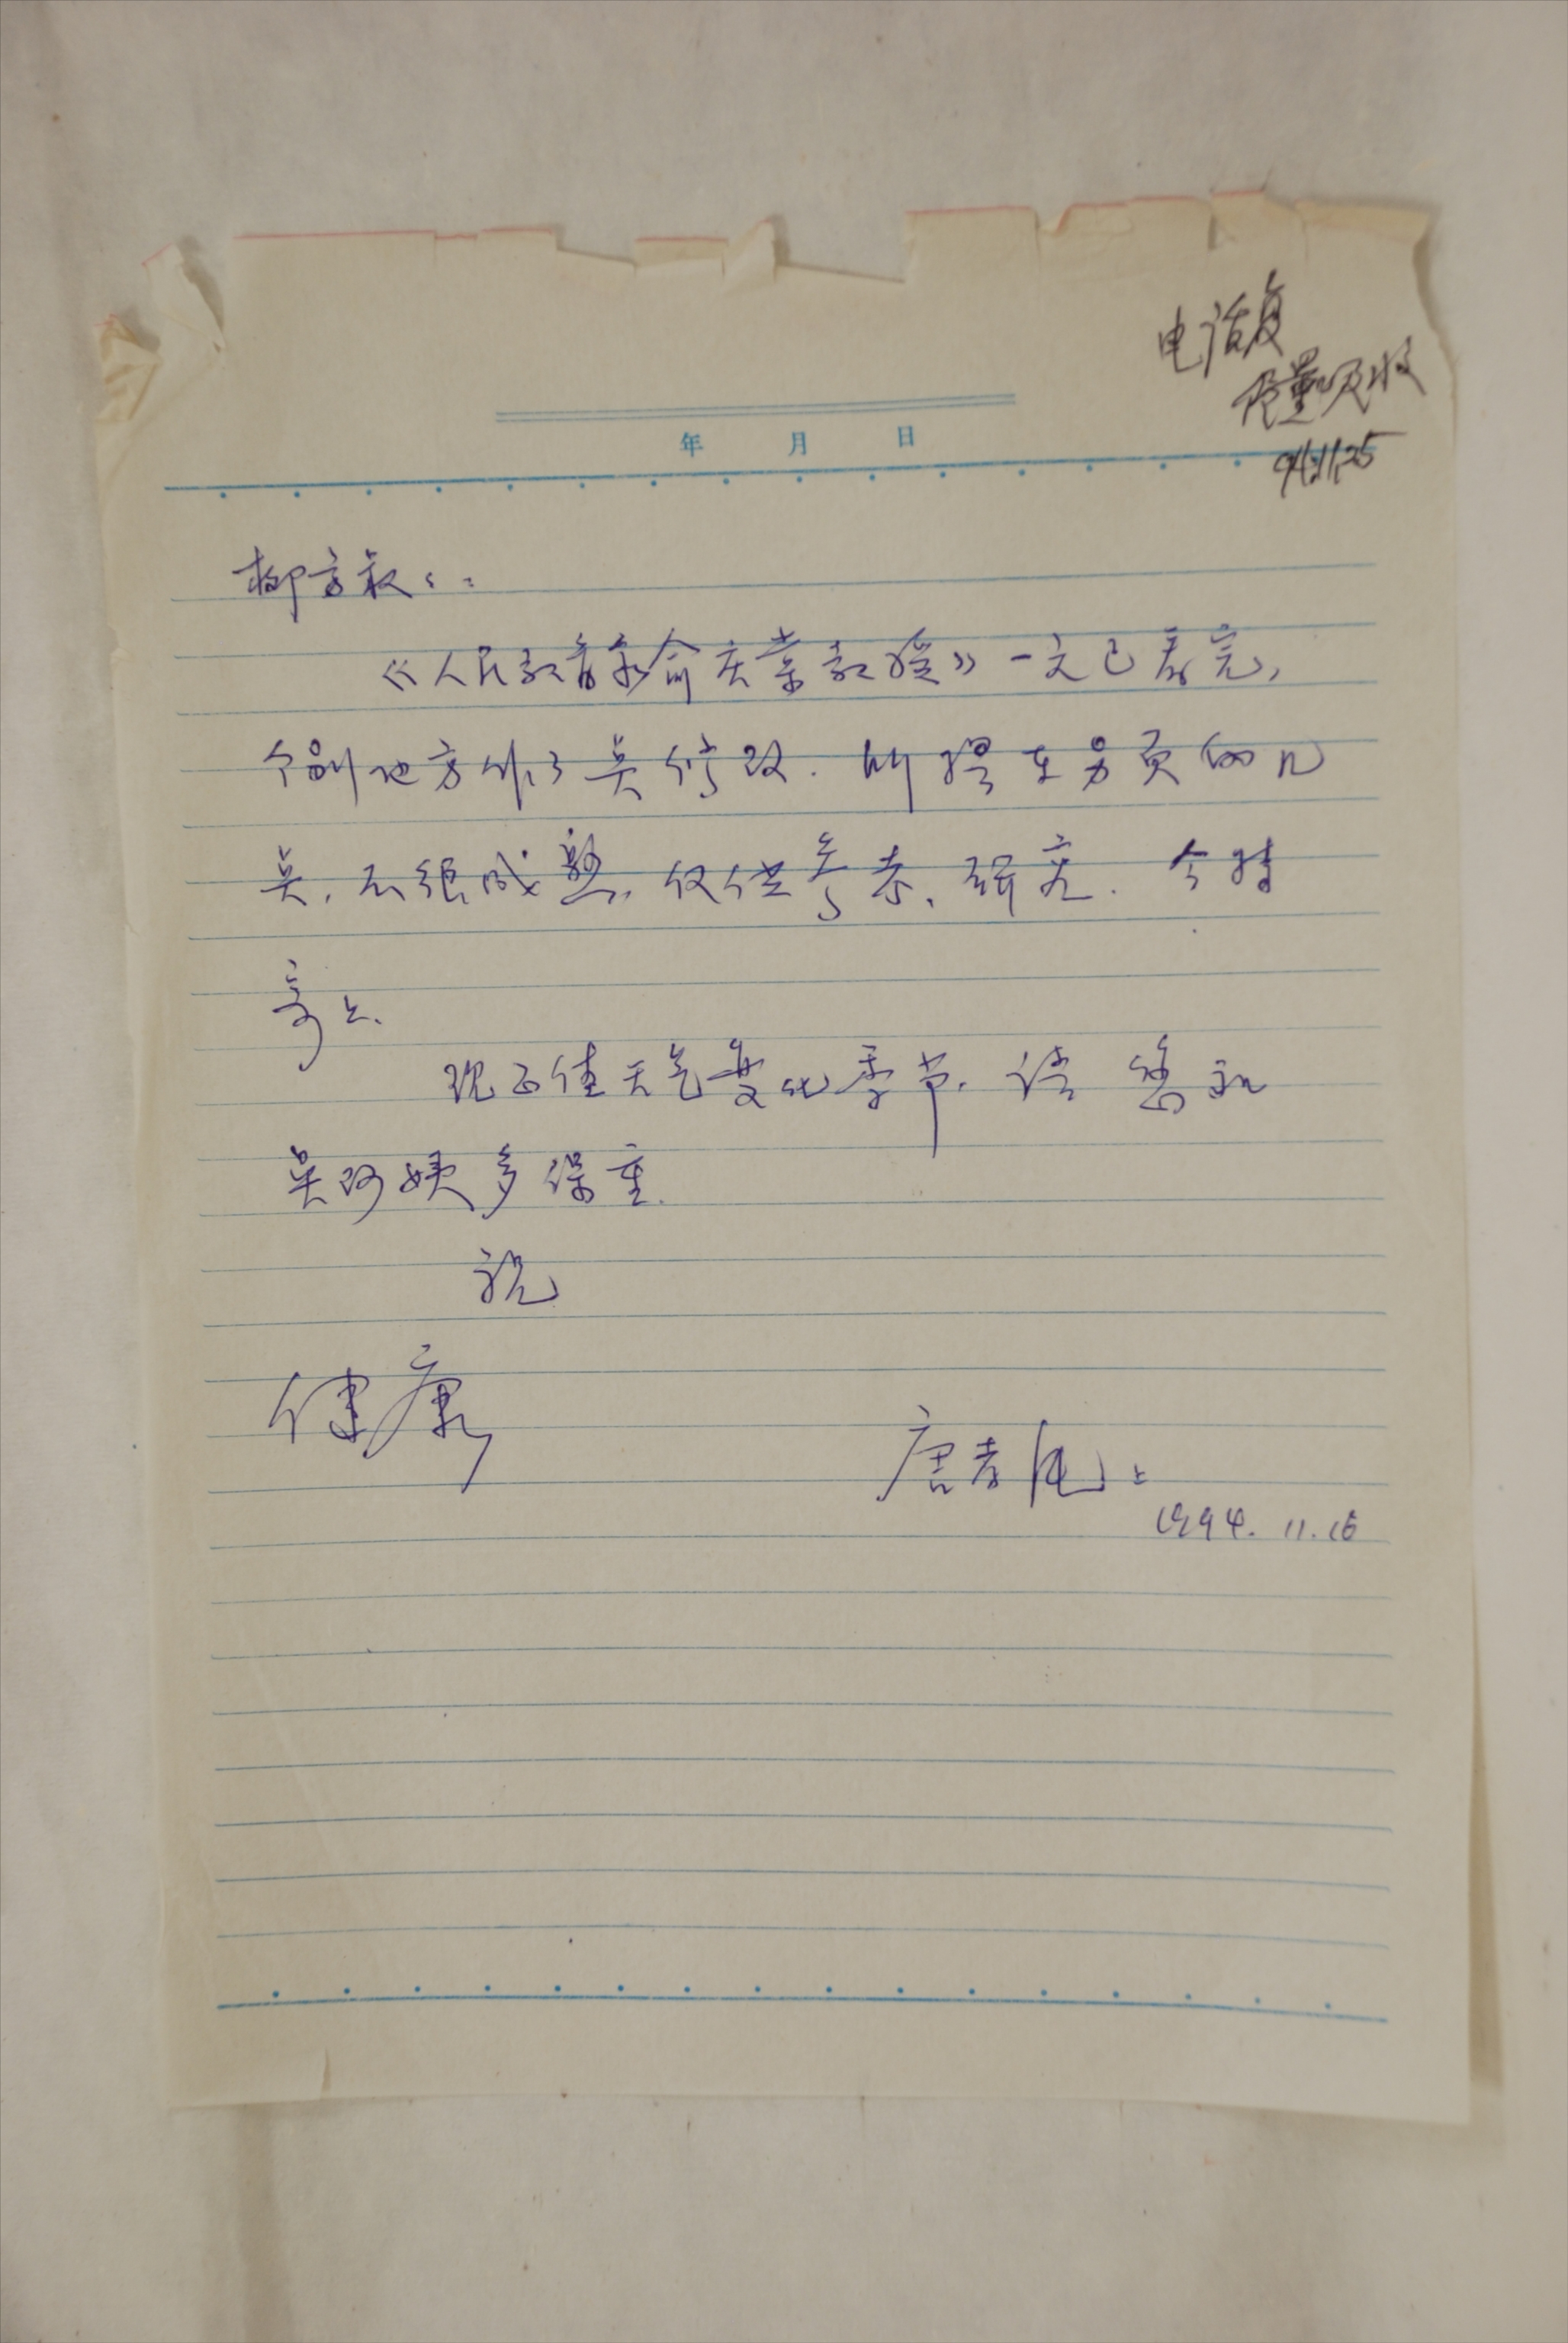 电话复
尽量吸收
94.11.25
年 月 日
柳方叔：
《人民教育家俞庆棠教授》一文已看完，
个别地方作了点修改. 所提在另页的几
点, 不很成熟, 仅供参考、研究. 今特
寄上.
现正值天气变化季节, 请您和
吴阿姨多保重.
祝
健康
唐孝纯上
1994. 11. 16